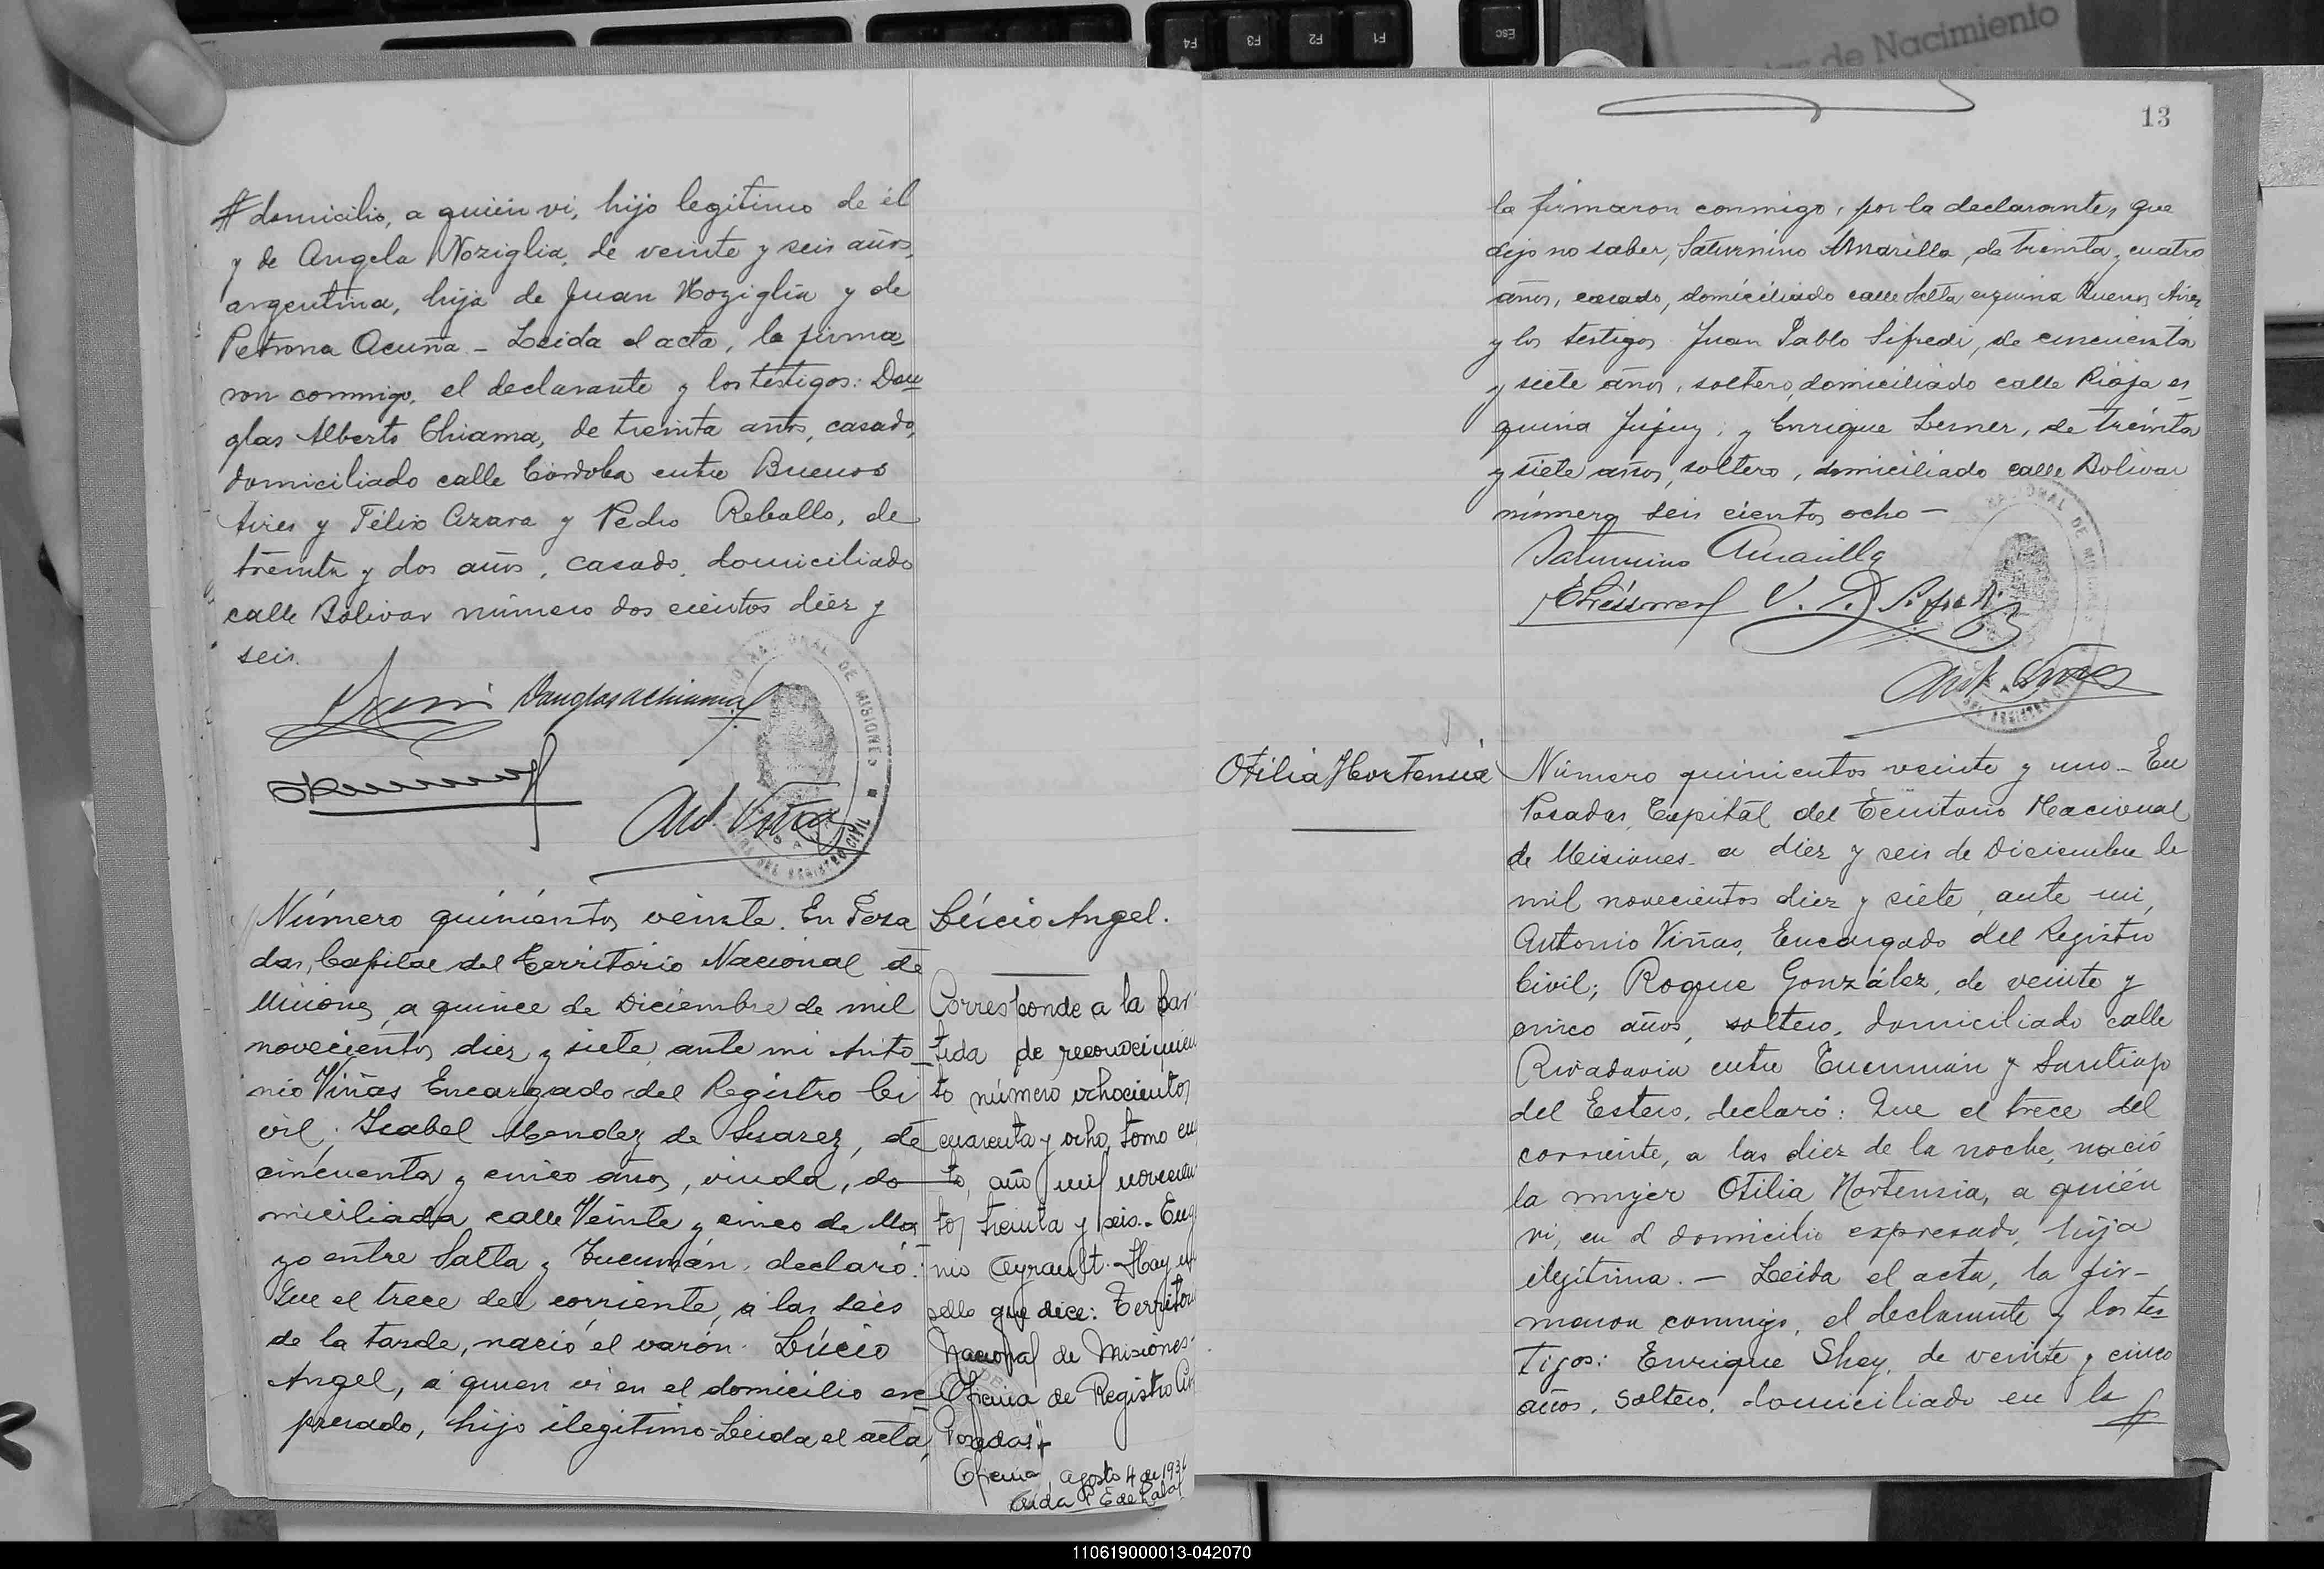 F4 F3 F2 F1 Esc
de Nacimiento
domicilio, a quién vi, hijo legítimo de él
y de Angela Noziglia, de veinte y seis años,
argentina, hija de Juan Noziglia y de
Petrona Acuña - Leida el acta, la firma
ron conmigo, el declarante y los testigos: Dou
glas Alberto Chiama, de treinta años, casado,
domiciliado calle Córdoba entre Buenos
Aires y Félix Azara y Pedro Reballo, de
treinta y dos años, casado, domiciliado
calle Bolivar número dos cientos diez y
seis.
Douglas AChiama
Ant. Viñas
Número quinientos veinte. En Posa
das, Capital del Territorio Nacional de
Misiones, a quince de Diciembre de mil
novecientos diez y siete, ante mi Anto
nio Viñas Encargado del Registro Ci
vil; Isabel Mendez de Suarez, de
cincuenta y cinco años, viuda, do
miciliada calle Veinte y cinco de Ma
yo entre Salta y Tucumán, declaró:
Que el trece del corriente, a las seis
de la tarde, nació el varón Lúcio
Angel, a quien vi en el domicilio ex
presado, hijo ilegítimo - Leida el acta,
Lúcio Angel.
Corresponde a la par
tida de reconocimien
to número ochocientos
cuarenta y ocho, tomo cu
to, año mil novecien
tos treinta y seis.- Eug
nio Ayrault.- Hay un
sello que dice: Territori
Nacional de Misiones-
Oficina de Registro Civ
Posadas.-
Oficina, agosto 4 de 1936
13
la firmaron conmigo, por la declarante, que
dijo no saber, Saturnino Amarilla, de treinta y cuatro
años, casado, domiciliado calle Salta esquina Buenos Aires
y los testigos Juan Pablo Sifredi, de cincuenta
y siete años, soltero, domiciliado calle Rioja es
quina Jujuy; y Enrique Lesner, de treinta
y siete años, soltero, domiciliado calle Bolivar
número seis cientos ocho -
Saturnino Amarilla
Ant. Viñas
Otilia Hortensia
Número quinientos veinte y uno - En
Posadas, Capital del Territorio Nacional
de Misiones - a diez y seis de Diciembre de
mil novecientos diez y siete, ante mi,
Antonio Viñas, Encargado del Registro
Civil; Roque González, de veinte y
cinco años, soltero, domiciliado calle
Rivadavia entre Tucumán y Santiago
del Estero, declaró: Que el trece del
corriente, a las diez de la noche, nació
la mujer Otilia Hortensia, a quién
vi, en el domicilio expresado, hija
ilegítima. - Leida el acta, la fir-
maron conmigo, el declarante y los tes
tigos: Enrique Shey, de veinte y cinco
años, soltero, domiciliado en la
110619000013-042070